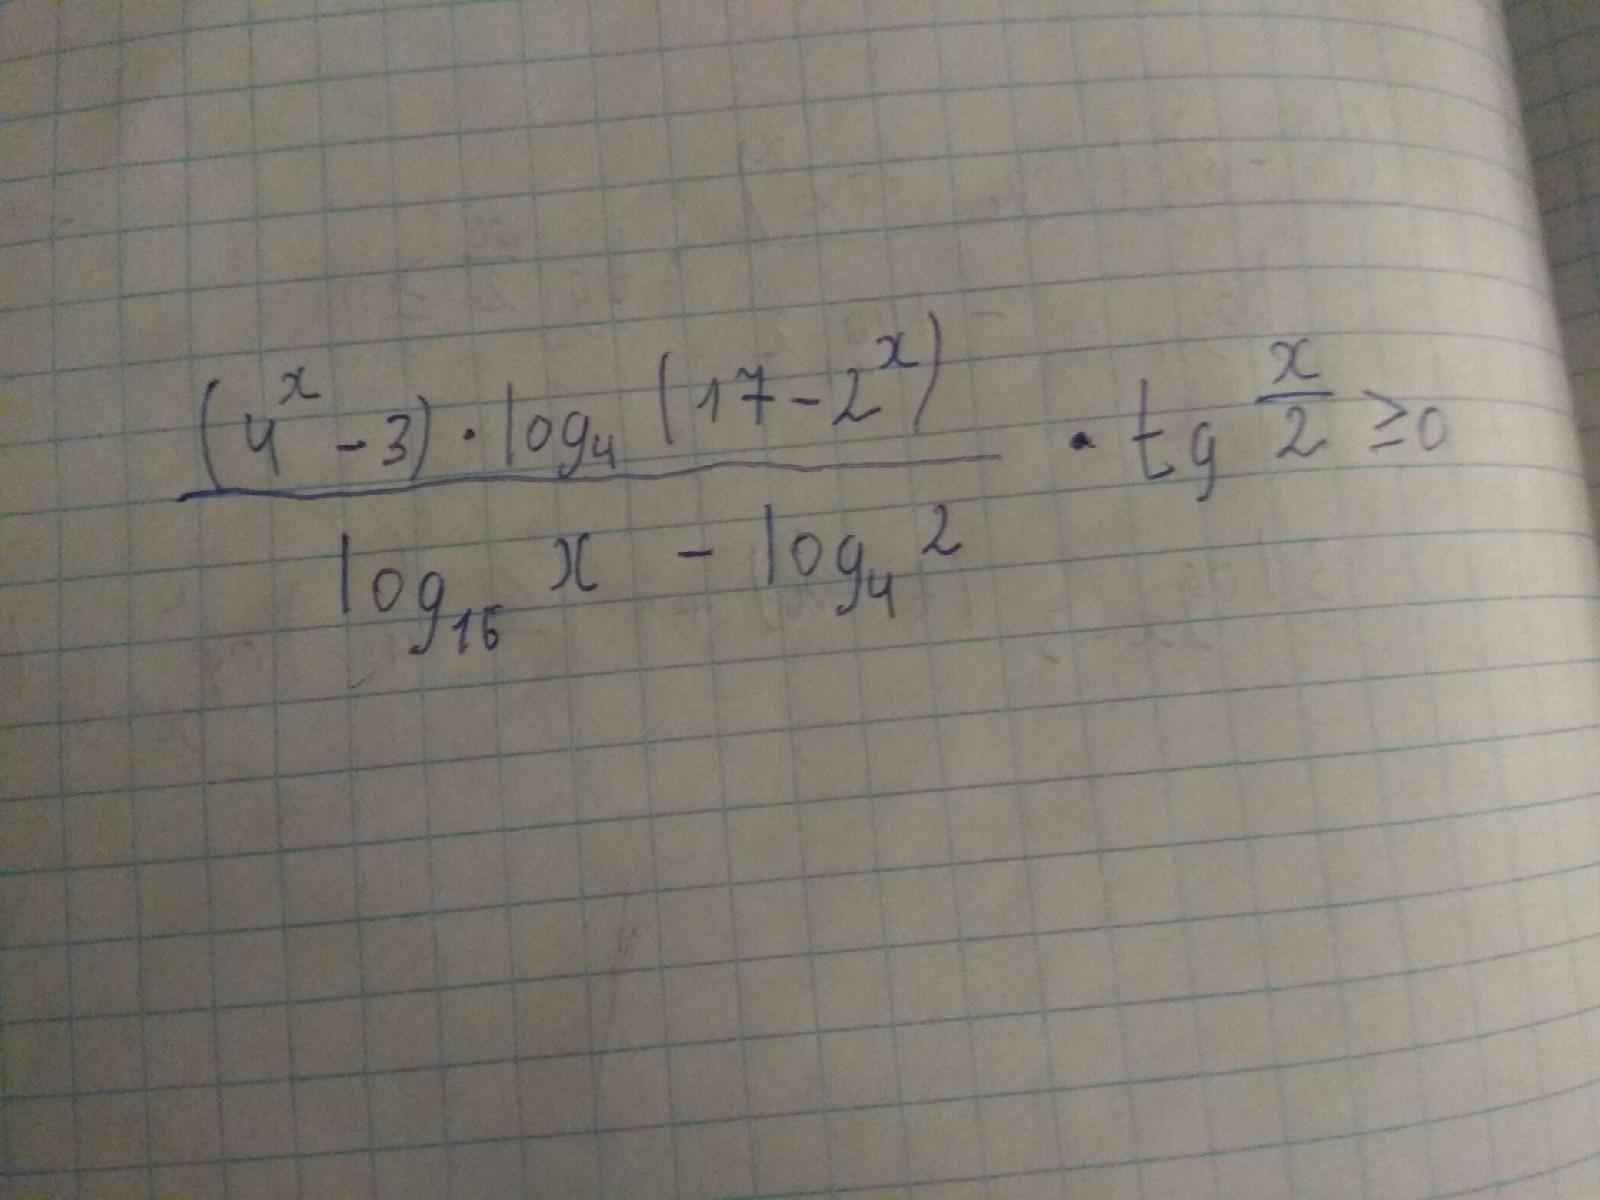 (4^x - 3) · log₄ (17 - 2^x)
log₁₆ x - log₄ 2
· tg x/2 ≥ 0